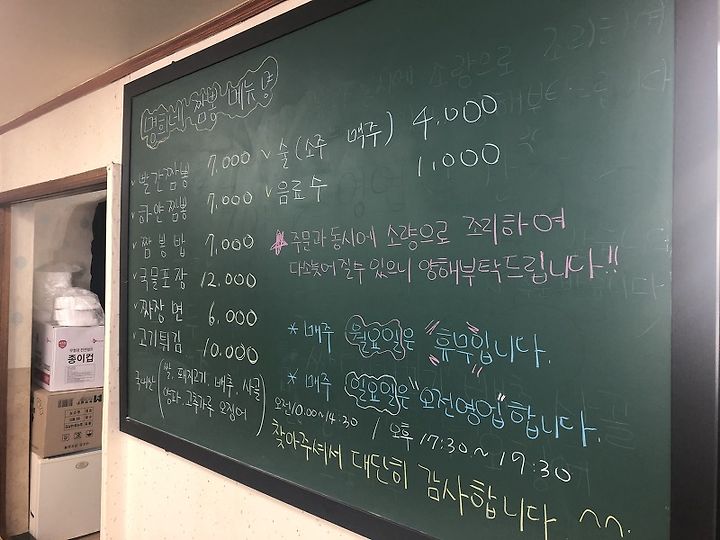 명희네 짬뽕 메뉴판
✓ 빨간짬뽕 7,000
✓ 하얀짬뽕 7,000
✓ 짬뽕밥 7,000
✓ 국물포장 12,000
✓ 짜장면 6,000
✓ 고기튀김 10,000
국내산 (쌀, 돼지고기, 배추, 사골
양파, 고추가루, 오징어)
✓ 술(소주 맥주) 4,000
✓ 음료수 1,000
☆ 주문과 동시에 소량으로 조리하여
다소 늦어질 수 있으니 양해부탁드립니다!!
* 매주 월요일은 "휴무"입니다.
* 매주 일요일은 "오전영업"합니다.
오전 10:00~14:30 / 오후 17:30~19:30
찾아주셔서 대단히 감사합니다 ^^.
종이컵